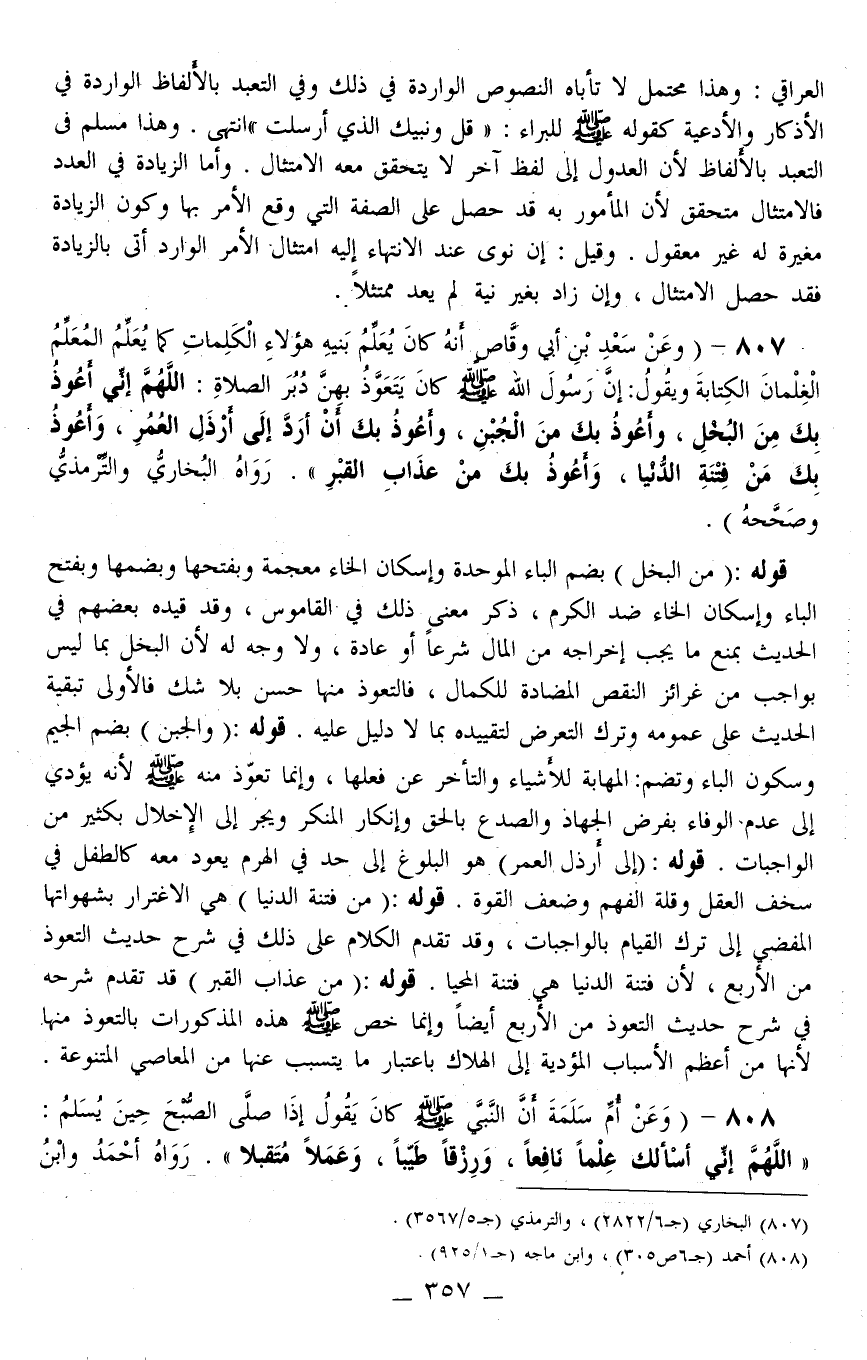 العراقي : وهذا محتمل لا تأباه النصوص الواردة في ذلك وفي التعبد بالألفاظ الواردة في
الأذكار والأدعية كقوله ﷺ للبراء : « قل ونبيك الذي أرسلت »انتهى . وهذا مسلم فى
التعبد بالألفاظ لأن العدول إلى لفظ آخر لا يتحقق معه الامتثال . وأما الزيادة في العدد
فالامتثال متحقق لأن المأمور به قد حصل على الصفة التي وقع الأمر بها وكون الزيادة
مغيرة له غير معقول . وقيل : إن نوى عند الانتهاء إليه امتثال الأمر الوارد أتى بالزيادة
فقد حصل الامتثال ، وإن زاد بغير نية لم يعد ممتثلاً .
٨٠٧ – ( وعَنْ سَعْدِ بْنِ أبي وقَّاصٍ أنهُ كانَ يُعَلِّمُ بَنيهِ هؤلاءِ الْكَلِماتِ كما يُعَلِّمُ المُعَلِّمُ
الْغِلْمانَ الكِتابةَ ويقُولُ: إنَّ رَسُولَ الله ﷺ كانَ يَتَعَوَّذُ بهِنَّ دُبُرَ الصلاةِ : اللَّهُمَّ إنّي أَعُوذُ
بِكَ مِنَ البُخْلِ ، وأَعُوذُ بكَ منَ الْجُبْنِ ، وأَعُوذُ بكَ أَنْ أرَدَّ إلَى أَرْذَلِ العُمُرِ ، وَأَعُوذُ
بِكَ مَنْ فِتْنَةِ الدُّنْيا ، وَأَعُوذُ بكَ منْ عذَابِ القبْرِ » . رَوَاهُ البُخاريُّ والتِّرْمذيُّ
وصَحَّحهُ ) .
قوله :( من البخل ) بضم الباء الموحدة وإسكان الخاء معجمة وبفتحها وبضمها وبفتح
الباء وإسكان الخاء ضد الكرم ، ذكر معنى ذلك في القاموس ، وقد قيده بعضهم في
الحديث بمنع ما يجب إخراجه من المال شرعاً أو عادة ، ولا وجه له لأن البخل بما ليس
بواجب من غرائز النقص المضادة للكمال ، فالتعوذ منها حسن بلا شك فالأولى تبقية
الحديث على عمومه وترك التعرض لتقييده بما لا دليل عليه . قوله :( والجبن ) بضم الجيم
وسكون الباء وتضم: المهابة للأشياء والتأخر عن فعلها ، وإنما تعوّذ منه ﷺ لأنه يؤدي
إلى عدم الوفاء بفرض الجهاد والصدع بالحق وإنكار المنكر ويجر إلى الإخلال بكثير من
الواجبات . قوله :(إلى أرذل العمر) هو البلوغ إلى حد في الهرم يعود معه كالطفل في
سخف العقل وقلة الفهم وضعف القوة . قوله :( من فتنة الدنيا ) هي الاغترار بشهواتها
المفضي إلى ترك القيام بالواجبات ، وقد تقدم الكلام على ذلك في شرح حديث التعوذ
من الأربع ، لأن فتنة الدنيا هي فتنة المحيا . قوله :( من عذاب القبر ) قد تقدم شرحه
في شرح حديث التعوذ من الأربع أيضاً وإنما خص ﷺ هذه المذكورات بالتعوذ منها
لأنها من أعظم الأسباب المؤدية إلى الهلاك باعتبار ما يتسبب عنها من المعاصي المتنوعة .
٨٠٨ – ( وَعَنْ أُمِّ سَلَمَةَ أَنَّ النَّبيَّ ﷺ كانَ يَقُولُ إذَا صلَّى الصُّبْحَ حِينَ يُسَلمُ :
« اللَّهُمَّ إنّي أسْألك عِلْماً نَافِعاً ، وَرِزْقاً طَيّباً ، وَعَمَلاً مُتَقبلا » . رَوَاهُ أحْمَدُ وابْنُ
(٨٠٧) البخاري (جـ٢٨٢٢/٦) ، والترمذي (جـ٣٥٦٧/٥) .
(٨٠٨) أحمد (جـ٦ص٣٠٥) ، وابن ماجه (حـ٩٢٥/١) .
— ٣٥٧ —